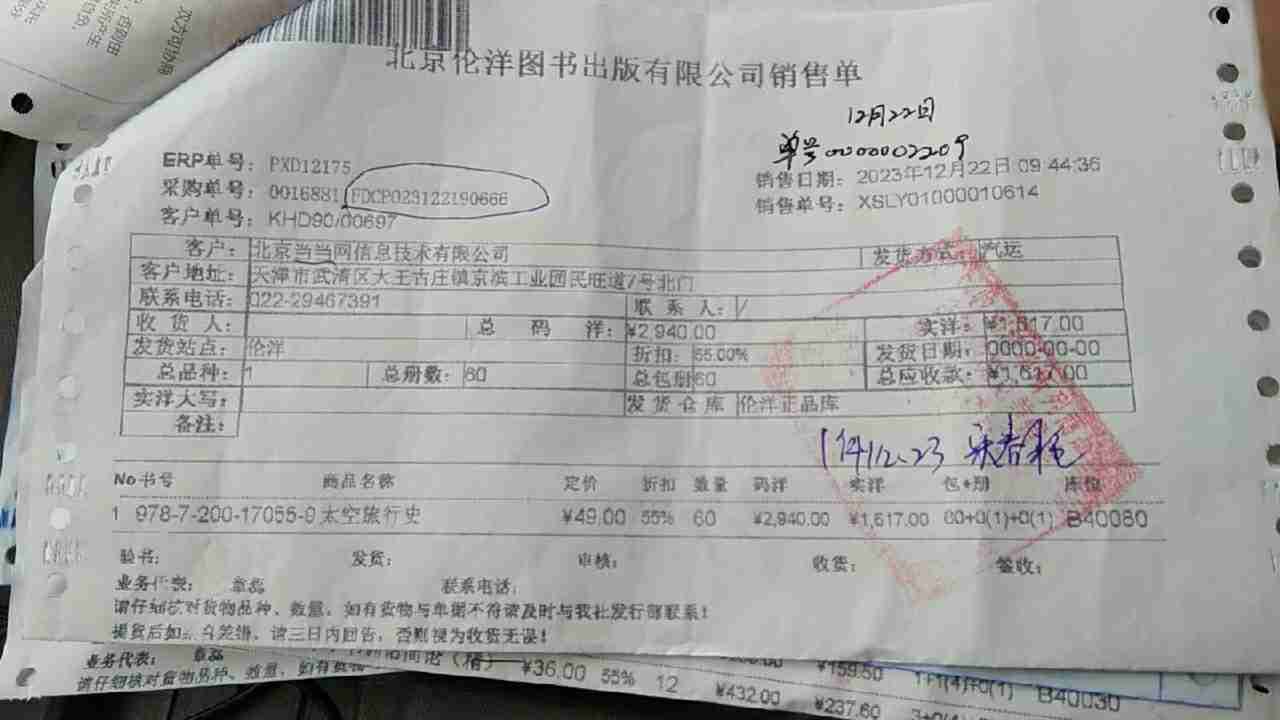 北京伦洋图书出版有限公司销售单
12月22日
单号0000002209
ERP单号: PXD12175
采购单号: 0016881 FDCP023122190666
客户单号: KHD90/00697
销售日期: 2023年12月22日 09:44:36
销售单号: XSLY01000010614
客户: 北京当当网信息技术有限公司 发货方式: 汽运
客户地址: 天津市武清区大王古庄镇京滨工业园民旺道7号北门
联系电话: 022-29467391 联系人: /
收货人: 总码洋: ¥2,940.00 实洋: ¥1,617.00
发货站点: 伦洋 折扣: 55.00% 发货日期: 0000-00-00
总品种: 1 总册数: 60 总包册 60 总应收款: ¥1,617.00
实洋大写: 发货仓库 伦洋正品库
备注:
12.23
No 书号 商品名称 定价 折扣 数量 码洋 实洋 包*册 库位
1 978-7-200-17055-9 太空旅行史 ¥49.00 55% 60 ¥2,940.00 ¥1,617.00 60+0(1)+0(1) B40080
验书: 发货: 审核: 收货: 签收:
业务代表: 章磊 联系电话:
请仔细核对货物品种、数量，如有货物与单据不符请及时与我社发行部联系！
提货后如 差错，请三日内回告，否则视为收货无误！
业务代表: 章磊
请仔细核对货物品种、数量，如有货物
(精) ¥36.00 55% 12 ¥432.00 ¥237.60
¥159.50 1+1(4)+0(1) B40030